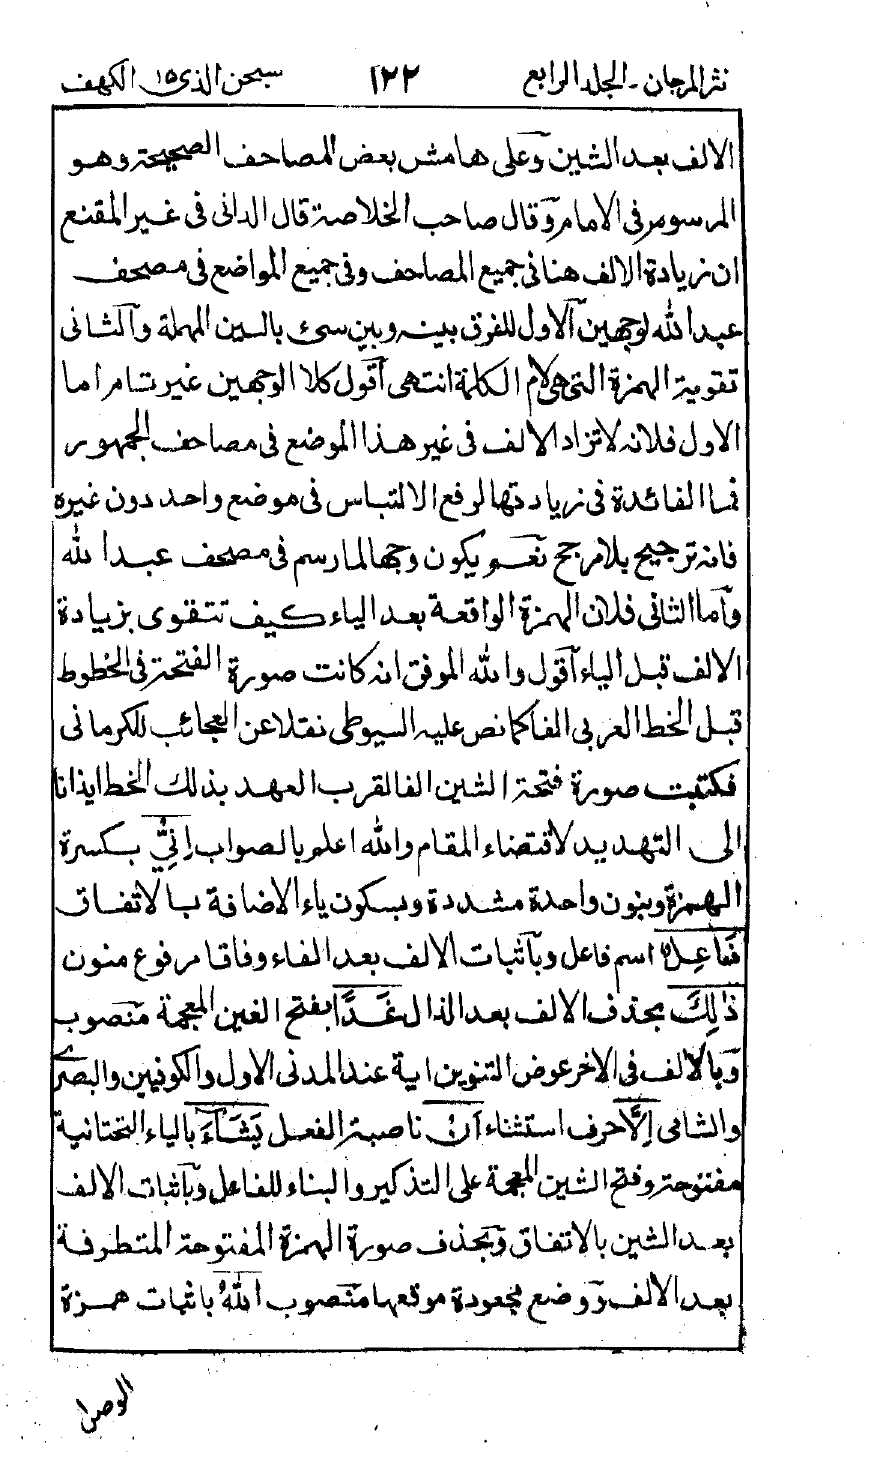 نثر المرجان - الجلد الرابع ١٢٢ سبحن الذى ١٥ الكهف
الالف بعد الشين وعلى هامش بعض المصاحف الصحيحة وهو
المرسوم فى الامام وقال صاحب الخلاصة قال الدانى فى غير المقنع
ان زيادة الالف هنا فى جميع المصاحف وفى جميع المواضع فى مصحف
عبد الله لوجهين آلاول للفرق بينه وبين سئ بالسين المهملة وآلثانى
تقوية الهمزة التى هى لام الكلمة انتهى آقول كلا الوجهين غير تام اما
الاول فلانه لا تزاد الالف فى غير هذا الموضع فى مصاحف الجمهور
فما الفائدة فى زيادتها لرفع الالتباس فى موضع واحد دون غيره
فانه ترجيح بلا مرجح نعم يكون وجها لما رسم فى مصحف عبد الله
وآما الثانى فلان الهمزة الواقعة بعد الياء كيف تتقوى بزيادة
الالف قبل الياء آقول والله الموفق انه كانت صورة الفتحة فى الخطوط
قبل الخط العربى الفا كما نص عليه السيوطى نقلا عن العجائب للكرمانى
فكتبت صورة فتحة الشين الفا لقرب العهد بذلك الخط ايذانا
الى التهديد لاقتضاء المقام والله اعلم بالصواب اِنِّيْ بكسرة
الهمزة وبنون واحدة مشددة وبسكون ياء الاضافة بالاتفاق
فَاعِلٌ اسم فاعل وبآثبات الالف بعد الفاء وفاقا مرفوع منون
ذٰلِكَ بحذف الالف بعد الذال غَدًا بفتح الغين المعجمة منصوب
وبالالف فى الاخر عوض التنوين اية عند المدنى الاول والكوفيين والبصرى
والشامى اِلَّا حرف استثناء اَنْ ناصبة الفعل يَشَآءَ بالياء التحتانية
مفتوحة وفتح الشين المعجمة على التذكير والبناء للفاعل وبآثبات الالف
بعد الشين بالاتفاق وبحذف صورة الهمزة المفتوحة المتطرفة
بعد الالف ووضع مجعودة موقعها منصوب اللهُ باثبات همزة
الوصل